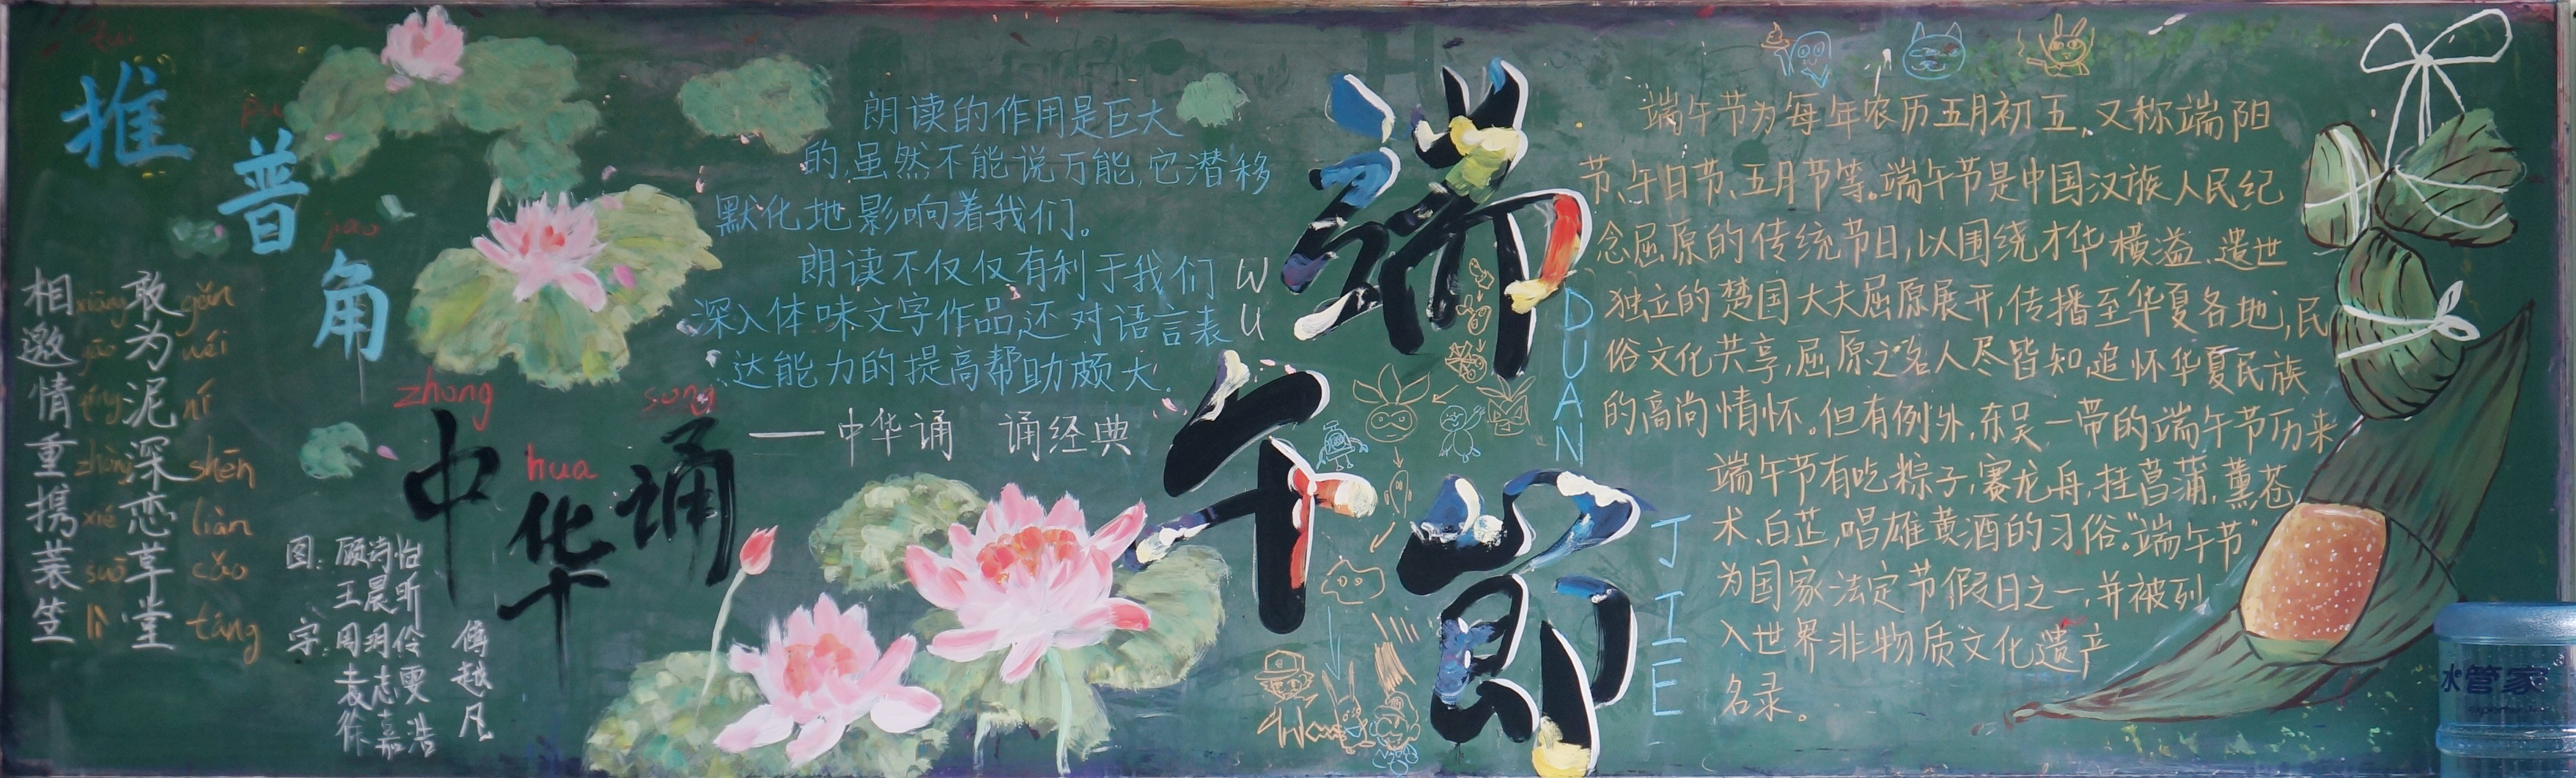 tui
推
pu
普
jiao
角
敢为泥深恋草堂
gǎn wéi ní shēn liàn cǎo táng
相邀情重携蓑笠
xiāng yāo qíng zhòng xié suō lì
zhong hua song
中华诵
图:顾诗怡
王晨昕
字:周玥伶
袁志雯
徐嘉浩
傅越凡
朗读的作用是巨大
的,虽然不能说万能,它潜移
默化地影响着我们。
朗读不仅仅有利于我们
深入体味文字作品,还对语言表
达能力的提高帮助颇大.
——中华诵 诵经典
端午节
DUAN
WU
JIE
端午节为每年农历五月初五,又称端阳
节、午日节、五月节等。端午节是中国汉族人民纪
念屈原的传统节日,以围绕才华横溢、遗世
独立的楚国大夫屈原展开,传播至华夏各地,民
俗文化共享,屈原之名人尽皆知,追怀华夏民族
的高尚情怀。但有例外,东吴一带的端午节历来
端午节有吃粽子,赛龙舟,挂菖蒲,薰苍
术、白芷,唱雄黄酒的习俗。“端午节”
为国家法定节假日之一,并被列
入世界非物质文化遗产
名录。
水管家